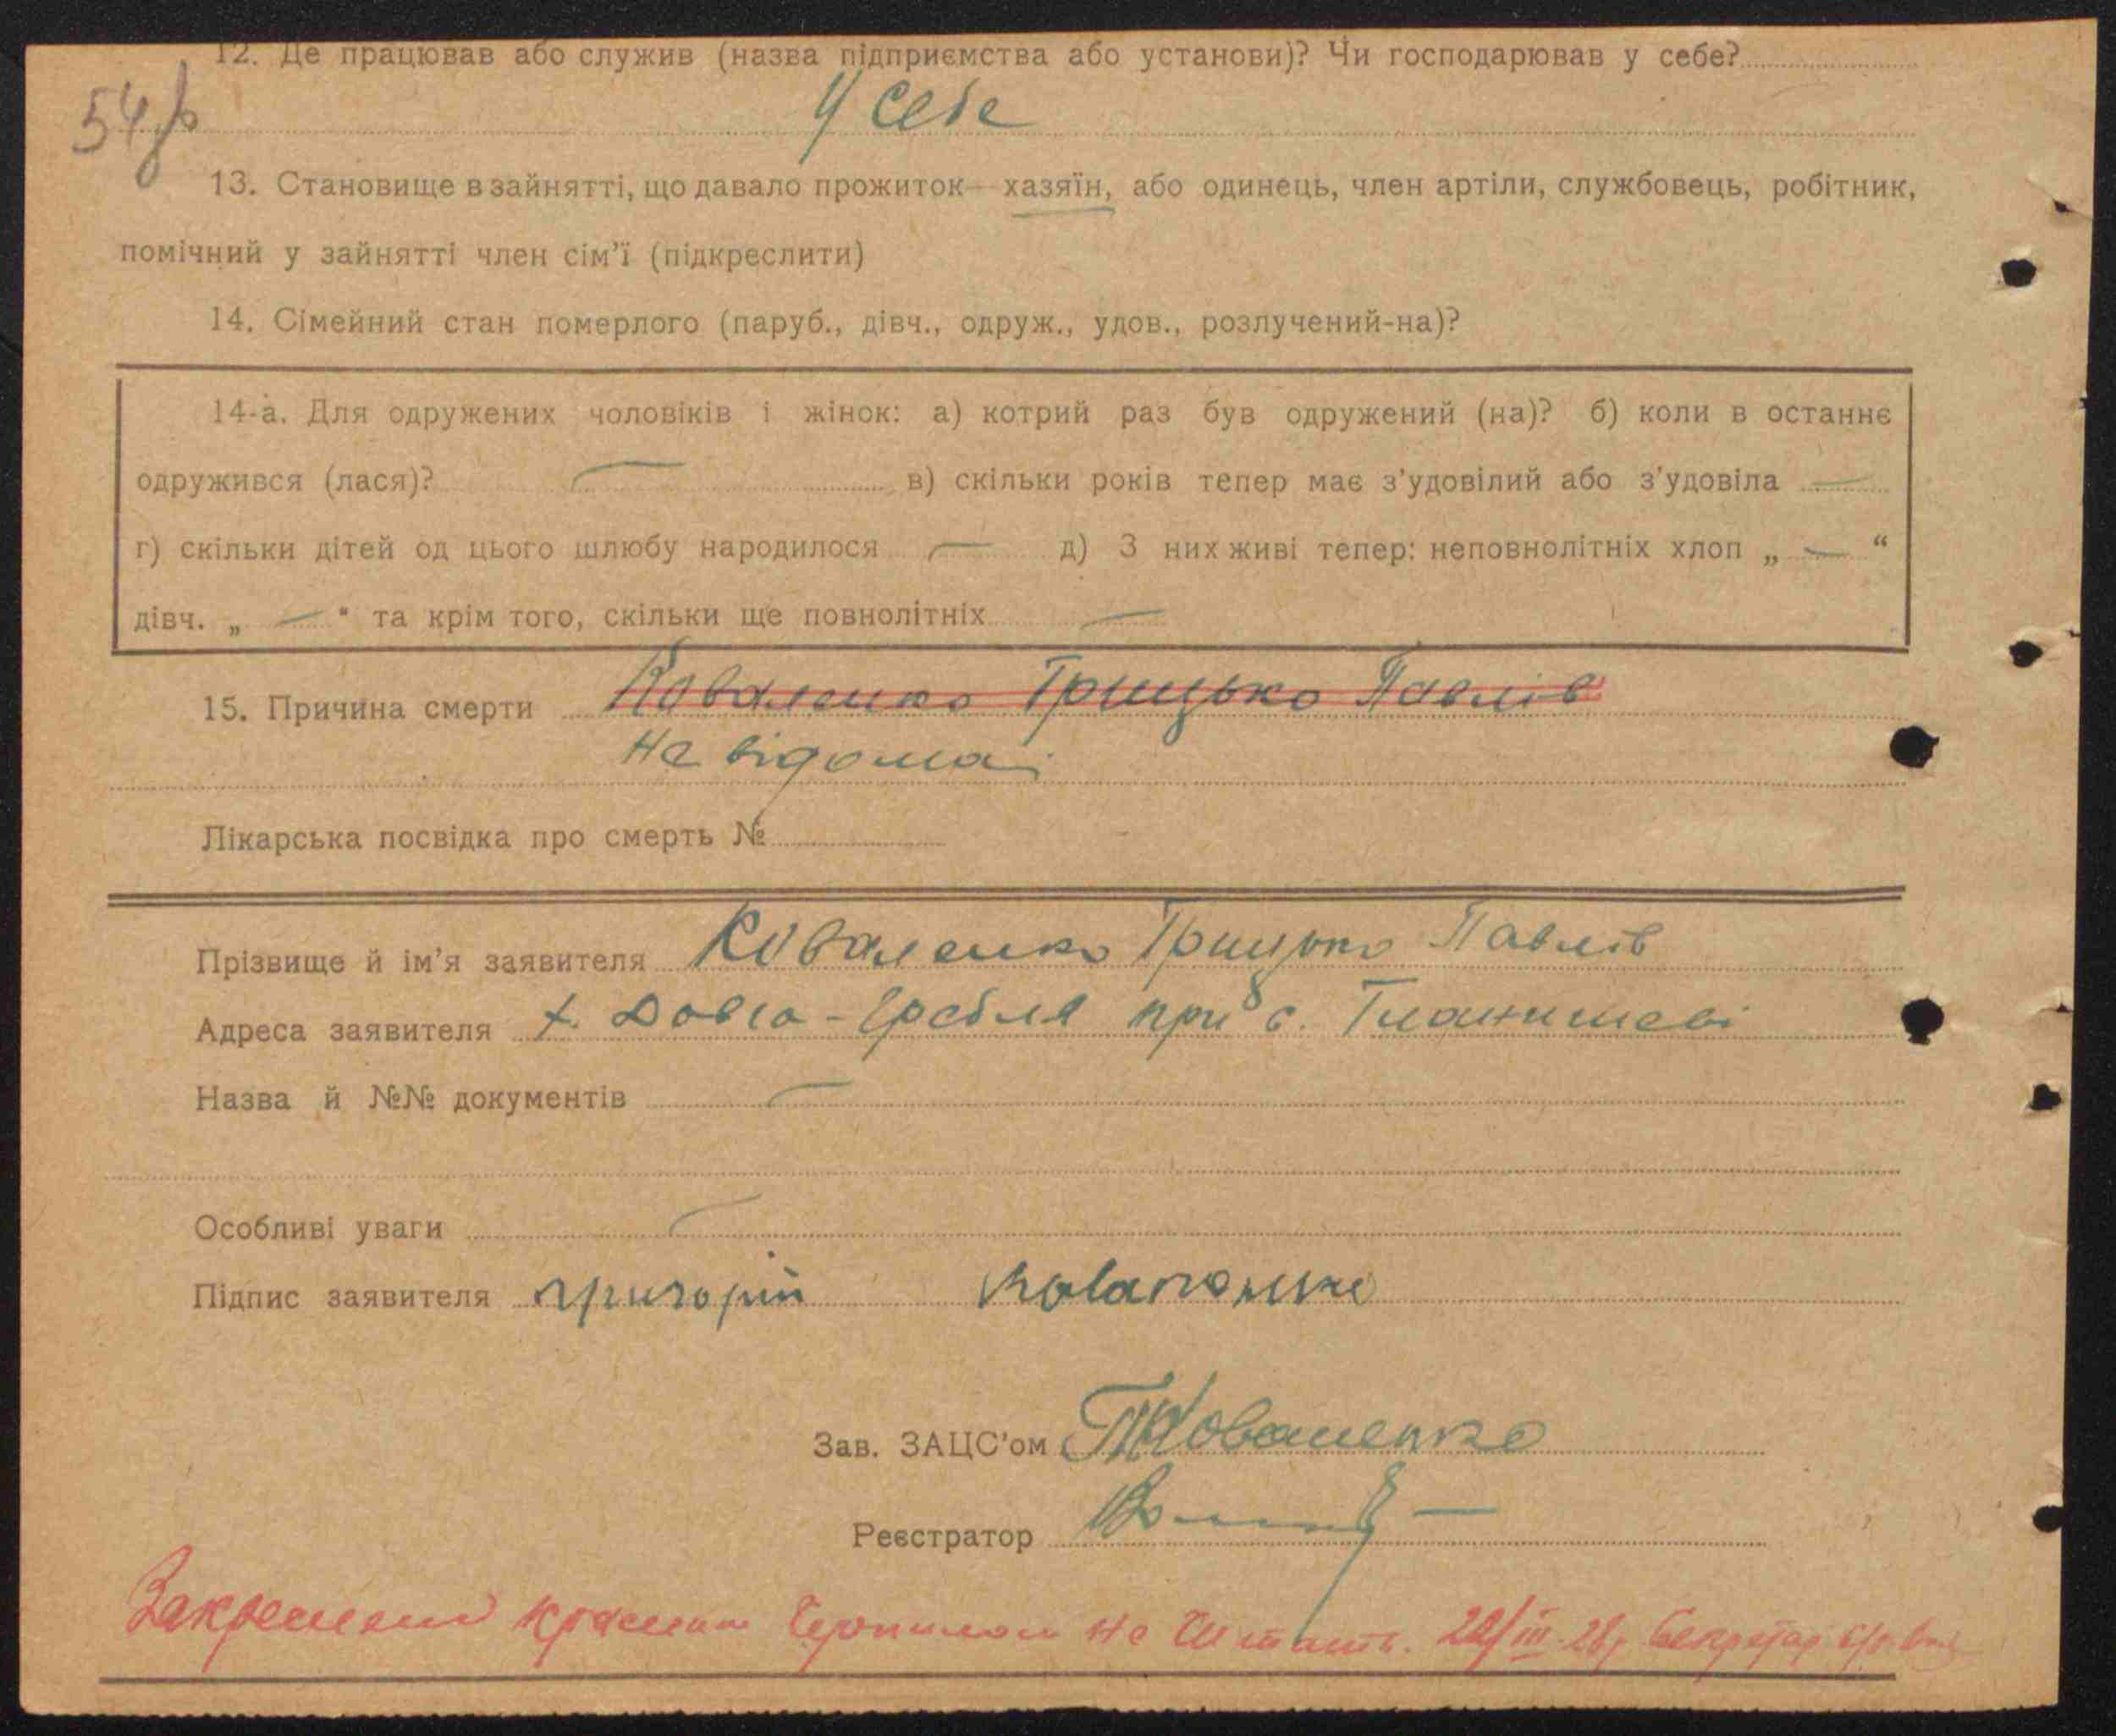 12. Де працював або служив (назва підприємства або установи)? Чи господарював у себе?
У себе
13. Становище в зайнятті, що давало прожиток — хазяїн, або одинець, член артіли, службовець, робітник,
помічний у зайнятті член сім'ї (підкреслити)
14. Сімейний стан померлого (паруб., дівч., одруж., удов., розлучений-на)?
14-а. Для одружених чоловіків і жінок: а) котрий раз був одружений (на)? б) коли в останнє
одружився (лася)? — в) скільки років тепер має з'удовілий або з'удовіла —
г) скільки дітей од цього шлюбу народилося — д) З них живі тепер: неповнолітніх хлоп „ — “
дівч. „ — “ та крім того, скільки ще повнолітніх —
15. Причина смерти Коваленко Грицько Павлів
Не відома
Лікарська посвідка про смерть №
Прізвище й ім'я заявителя Коваленко Грицько Павлів
Адреса заявителя х. Довга-Гребля при с.
Назва й №№ документів —
Особливі уваги —
Підпис заявителя Григорій Коваленко
Зав. ЗАЦС'ом Коваленко
Реєстратор
красним не читать. 28 р. Секретар